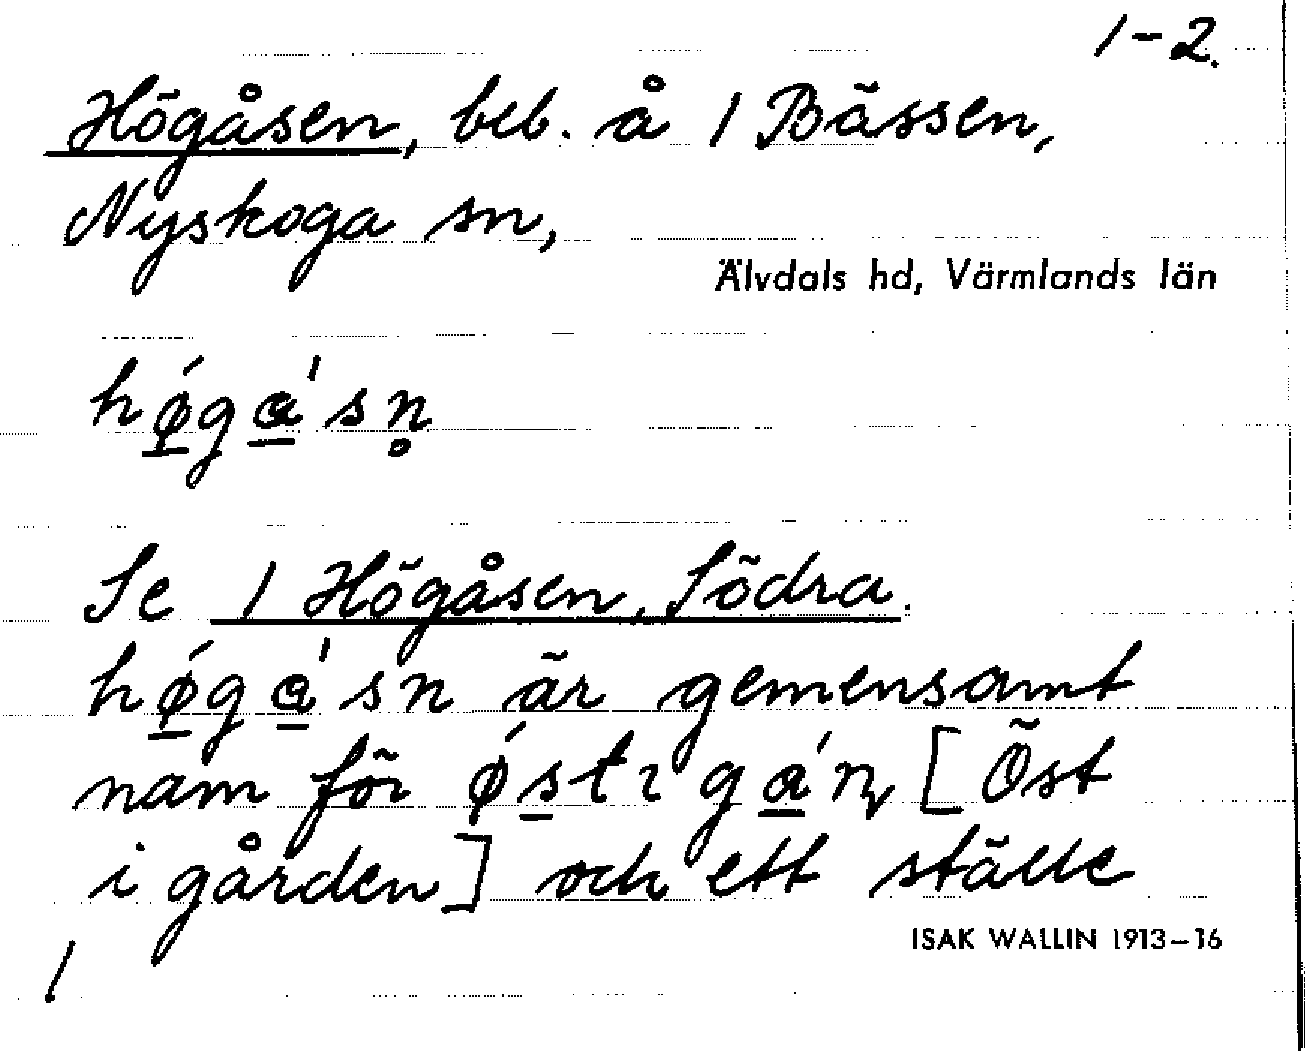 1-2.
Högåsen, beb. å 1 Bässen,
Nyskoga sn,
Älvdals hd, Värmlands län
hǿ̱ga̱'sn̥
Se 1 Högåsen, Södra.
hǿ̱ga̱'sn är gemensamt
namn för ǿs̱tɩga̱'ɳ [Öst
i gården] och ett ställe
ISAK WALLIN 1913-16
1